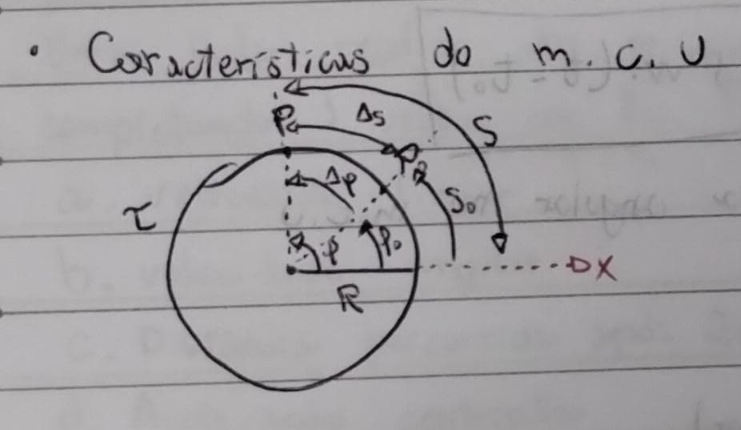 • Características do m. c. U
P₁ Δs P₀ S
τ Δφ S₀
φ φ₀ X
R